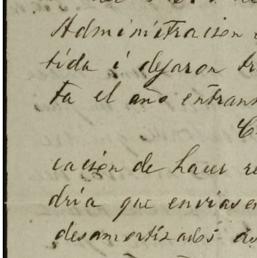 Administracion
tida i dejaron
ta el año entran
cación de hacer re
dria que enviase
desamortizados